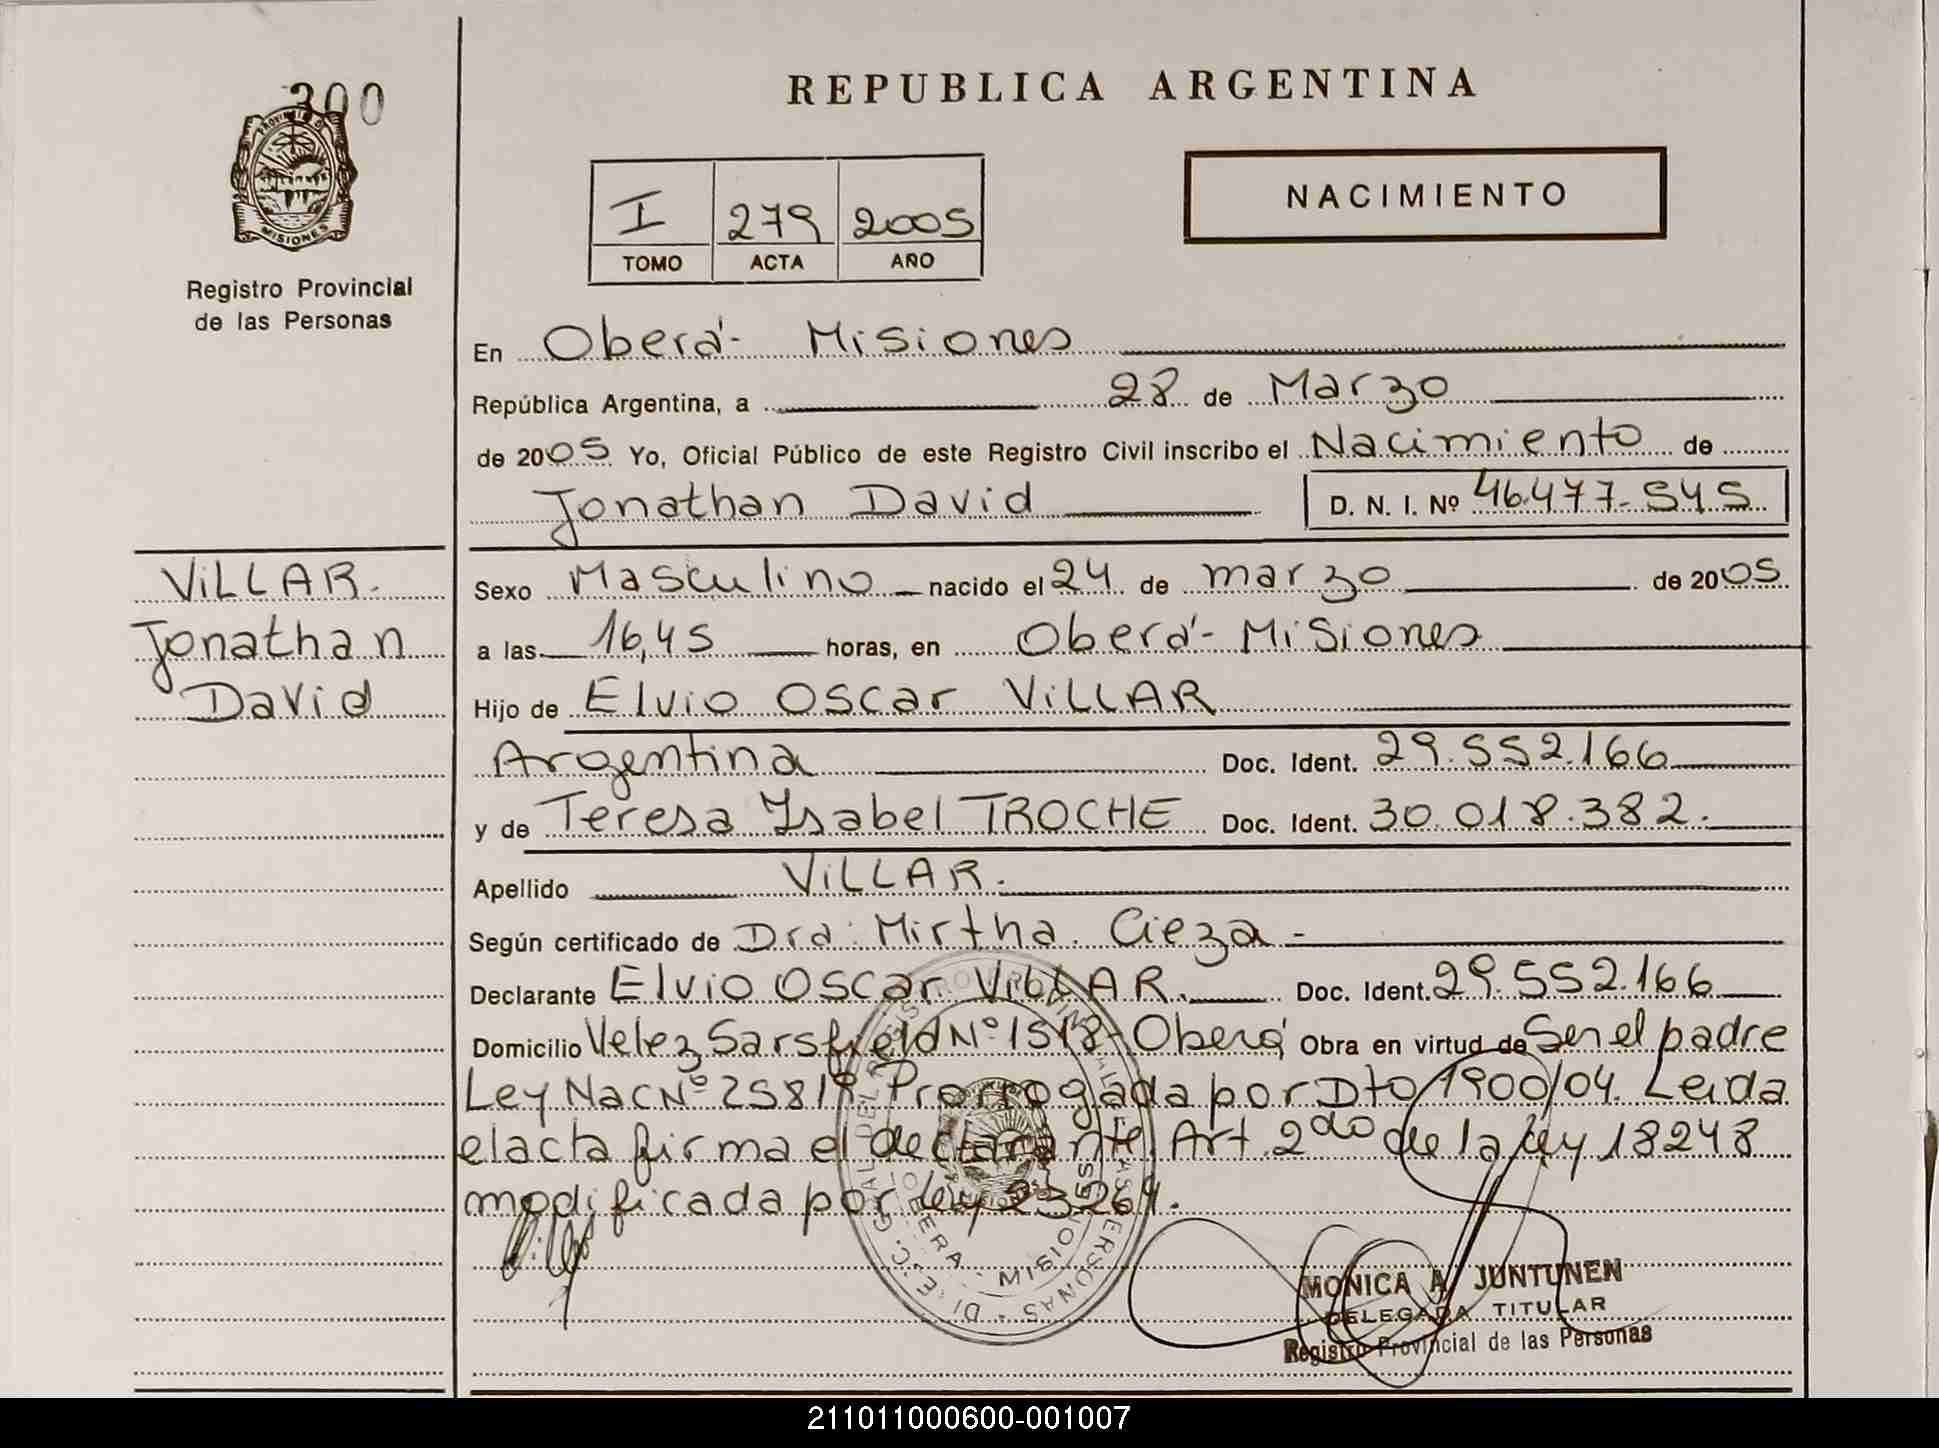 300
PROVINCIA DE
MISIONES
Registro Provincial
de las Personas
REPUBLICA ARGENTINA
I 279 2005
TOMO ACTA AÑO
NACIMIENTO
En Oberá- Misiones
República Argentina, a 28 de Marzo
de 2005 Yo, Oficial Público de este Registro Civil inscribo el Nacimiento de
Jonathan David D. N. I. Nº 46.477.545
VILLAR.
Jonathan
David
Sexo Masculino nacido el 24 de marzo de 2005
a las 16,45 horas, en Oberá- Misiones
Hijo de Elvio Oscar VILLAR
Argentina Doc. Ident. 29.552.166
y de Teresa Ysabel TROCHE Doc. Ident. 30.018.382.
Apellido VILLAR.
Según certificado de Dra. Mirtha Cieza -
Declarante Elvio Oscar VILLAR. Doc. Ident. 29.552.166
Domicilio Velez Sarsfield Nº 1518- Oberá Obra en virtud de Ser el padre
Ley Nac Nº 25819 Prorrogada por Dto 1900/04. Leida
el acta firma el declarante. Art. 2do de la ley 18248
modificada por ley 23264.
OBERA - MISIONES
MONICA A. JUNTUNEN
DELEGADA TITULAR
Registro Provincial de las Personas
211011000600-001007